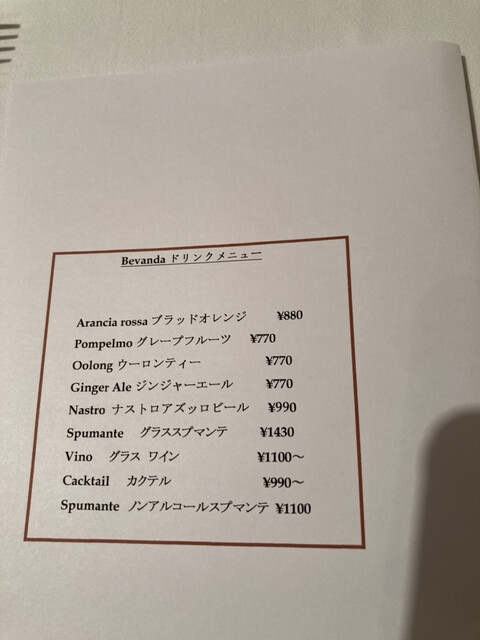 Bevanda ドリンクメニュー
Arancia rossa ブラッドオレンジ ¥880
Pompelmo グレープフルーツ ¥770
Oolong ウーロンティー ¥770
Ginger Ale ジンジャーエール ¥770
Nastro ナストロアズッロビール ¥990
Spumante グラススプマンテ ¥1430
Vino グラス ワイン ¥1100～
Cacktail カクテル ¥990～
Spumante ノンアルコールスプマンテ ¥1100